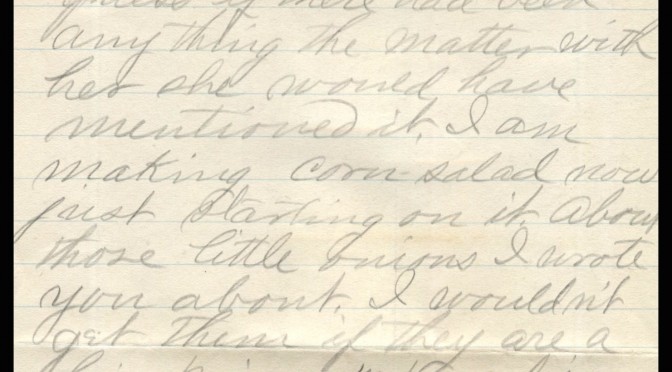 guess if there had been
anything the matter with
her she would have
mentioned it. I am
making corn-salad now
just starting on it. About
those little onions I wrote
you about. I wouldn't
get them if they are a